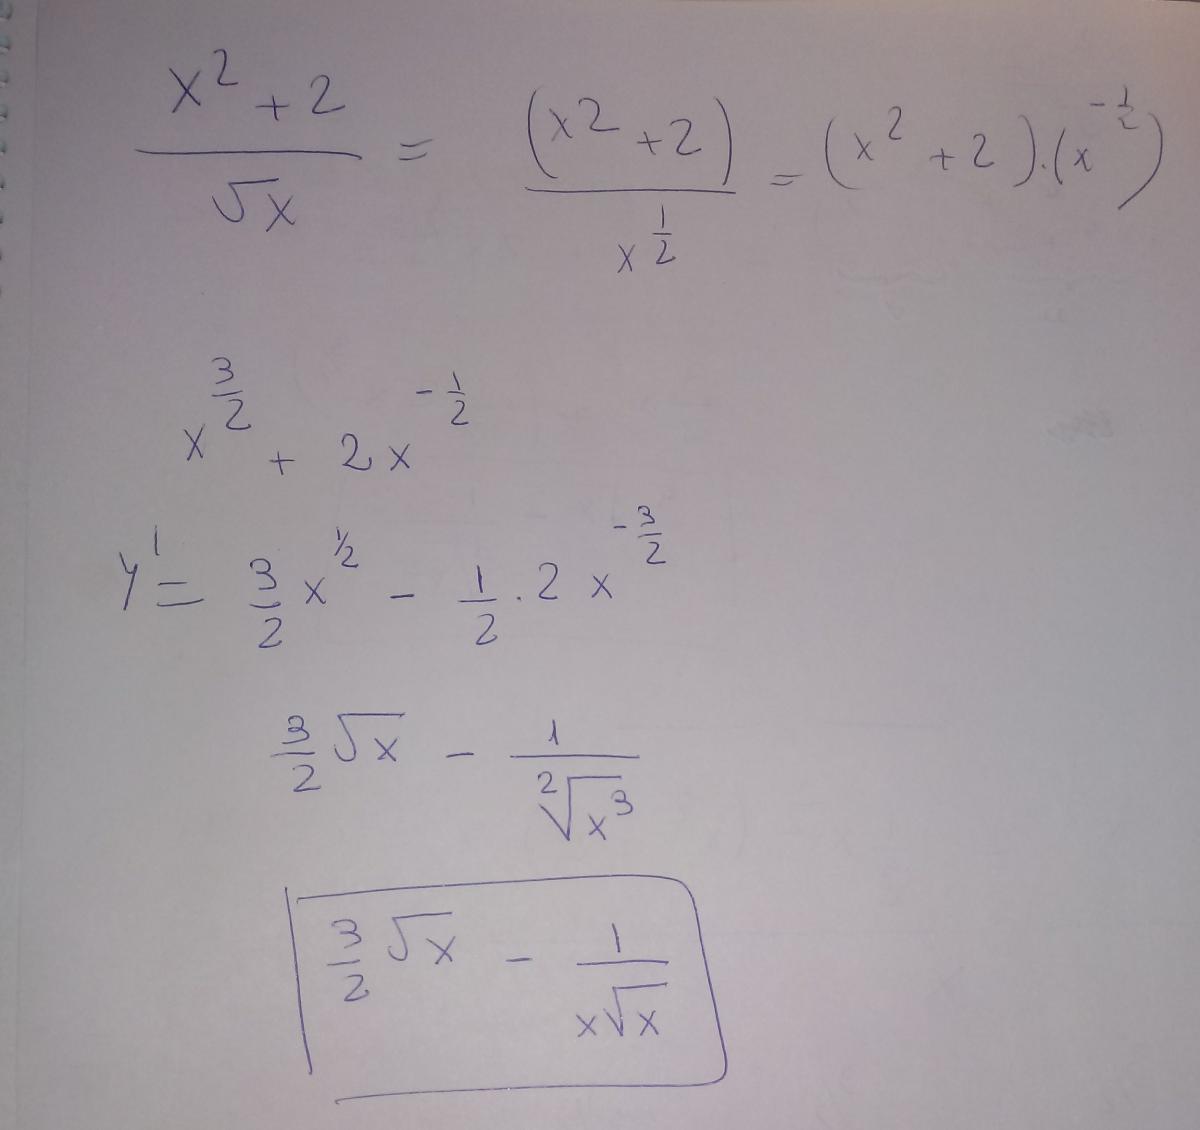 (x² + 2)/√x = (x² + 2)/x^(1/2) = (x² + 2).(x^(-1/2))
x^(3/2) + 2x^(-1/2)
y' = 3/2 x^(1/2) - 1/2 . 2x^(-3/2)
3/2 √x - 1/²√x³
3/2 √x - 1/x√x